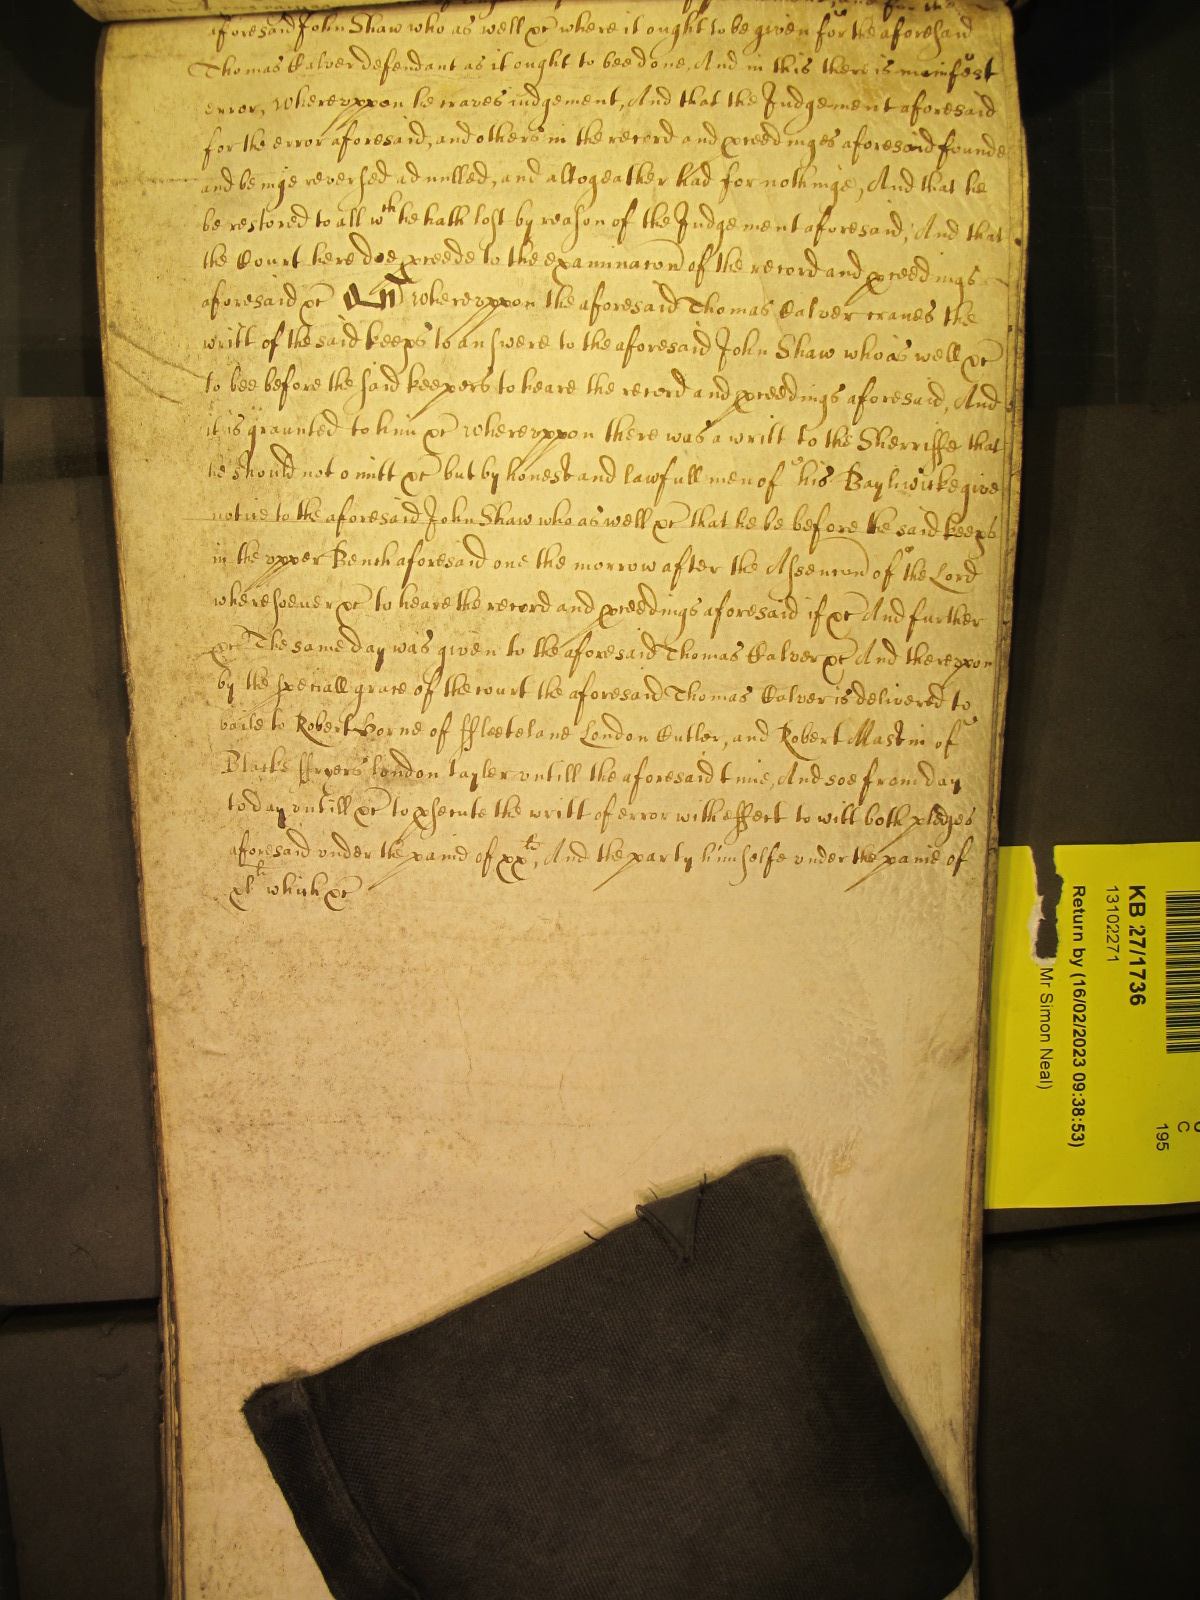 aforesaid John Shaw who as well xc where it ought to be given for the aforesaid
Thomas Calver defendant as it ought to bee done, And in this there is manifest
error, Whereuppon he craves iudgement, And that the Judgement aforesaid
for the error aforesaid, and others in the record and pceedinges aforesaid founde
and beinge reversed adnulled, and altogeather had for nothinge, And that he
be restored to all wch he hath lost by reason of the Judgement aforesaid, And that
the Court here doe pceede to the examinacon of the record and pceedings
aforesaid xc Whereuppon the aforesaid Thomas Calver craues the
writt of the said keeps to answere to the aforesaid John Shaw who as well xc
to bee before the said keepers to heare the record and pceedings aforesaid, And
it is graunted to him xc Whereuppon there was a writt to the Sherriffe that
he should not omitt xc but by honest and lawfull men of his Bayliwicke give
notice to the aforesaid John Shaw who as well xc that he be before the said keeps
in the upper Bench aforesaid one the morrow after the Assencon of the Lord
wheresoever xc to heare the record and pceedings aforesaid if xc And further
xc The same day was given to the aforesaid Thomas Calver xc And thereuppon
by the speciall grace of the court the aforesaid Thomas Calver is delivered to
baile to Robert Horne of ffleetelane London Cutler, and Robert Mastin of
Blacke ffryers London tayler untill the aforesaid time, And soe from day
to day untill xc to psecute the writt of error with effect to witt both pledges
aforesaid under the paine of xxli, And the party himselfe under the paine of
xlli which xc
KB 27/1736
13102271
Return by (16/02/2023 09:38:53)
Mr Simon Neal)
C
195